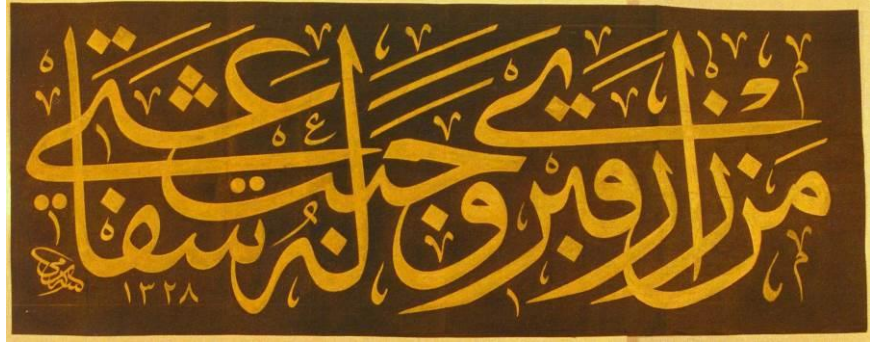 من زار قبرى وجبت له شفاعتى
١٣٢٨